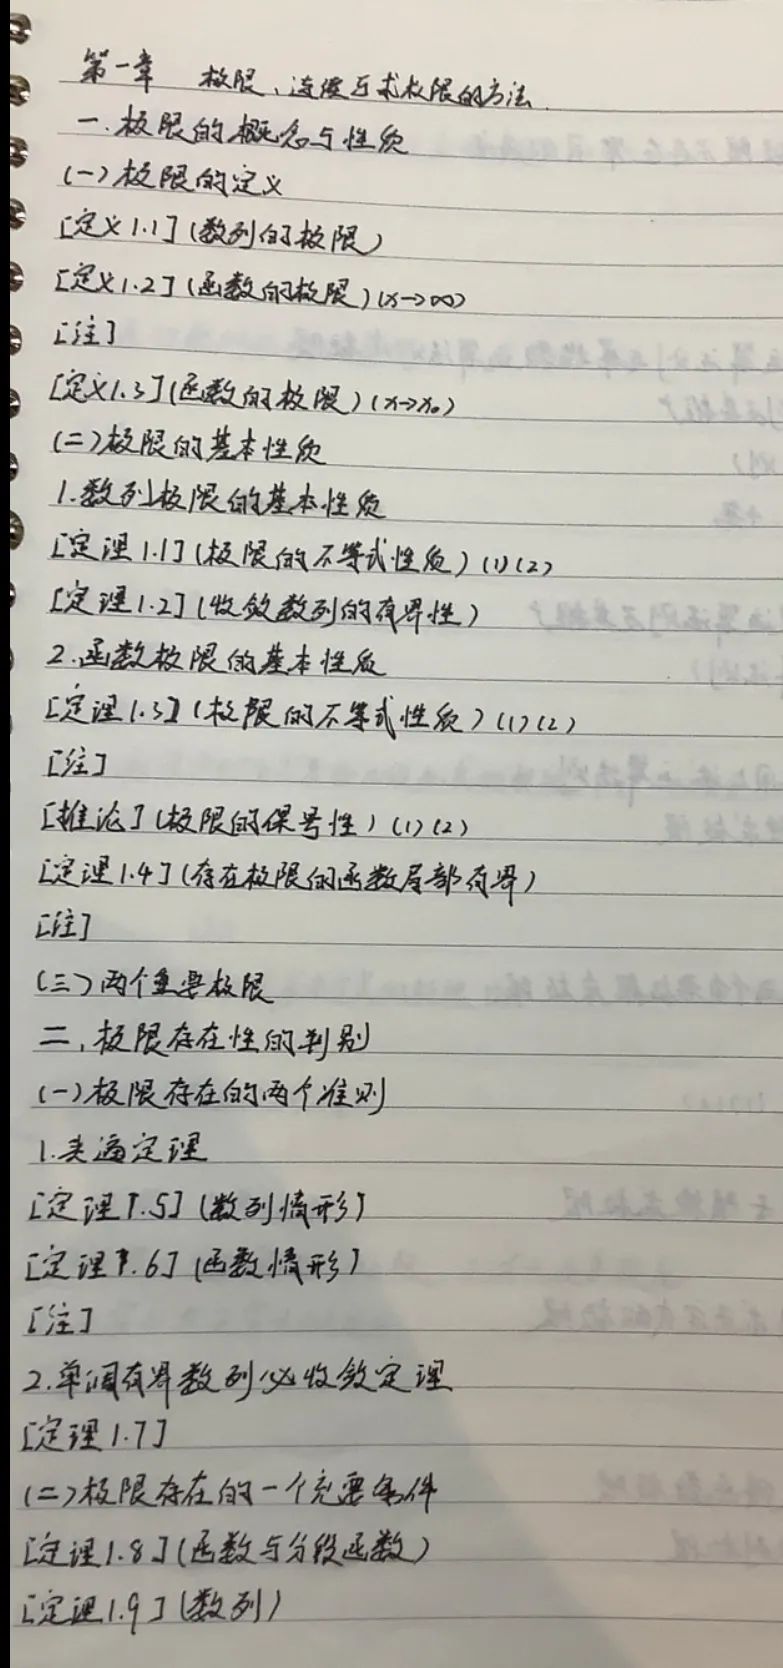 第一章 极限、连续与求极限的方法
一.极限的概念与性质
(一)极限的定义
[定义1.1](数列的极限)
[定义1.2](函数的极限)(x→∞)
[注]
[定义1.3](函数的极限)(x→x₀)
(二)极限的基本性质
1.数列极限的基本性质
[定理1.1](极限的不等式性质)(1)(2)
[定理1.2](收敛数列的有界性)
2.函数极限的基本性质
[定理1.3](极限的不等式性质)(1)(2)
[注]
[推论](极限的保号性)(1)(2)
[定理1.4](存在极限的函数局部有界)
[注]
(三)两个重要极限
二.极限存在性的判别
(一)极限存在的两个准则
1.夹逼定理
[定理1.5](数列情形)
[定理1.6](函数情形)
[注]
2.单调有界数列必收敛定理
[定理1.7]
(二)极限存在的一个充要条件
[定理1.8](函数与分段函数)
[定理1.9](数列)